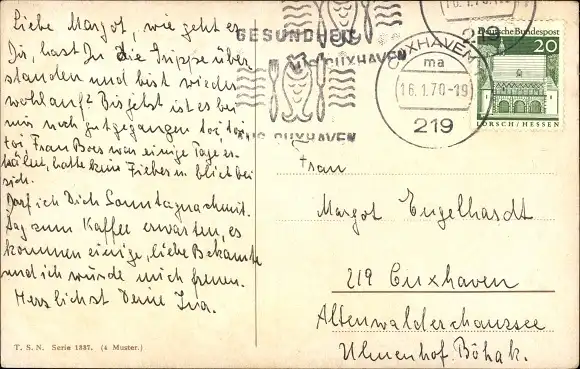 Liebe Margot, wie geht es
Dir, hast Du die Grippe über
standen und bist wieder
wohlauf? Bis jetzt ist es bei
mir noch gut gegangen toi, toi
toi Frau Boes war einige Tage er-
kältet, hatte kein Fieber u. blieb bei
sich.
Darf ich Dich Sonntagnachmit.
tag zum Kaffee erwarten, es
kommen einige, liebe Bekannte
und ich würde mich freuen.
Herzlichst Deine Ina.
T. S. N. Serie 1887. (4 Muster.)
GESUNDHEIT
AUS CUXHAVEN
GESUNDHEIT
AUS CUXHAVEN
16.1.70
219
CUXHAVEN 1
ma
16.1.70-19
219
Deutsche Bundespost
20
LORSCH/HESSEN
Frau
Margot Engelhardt
219 Cuxhaven
Altenwalderchaussee
Ulmenhof. Böhak.